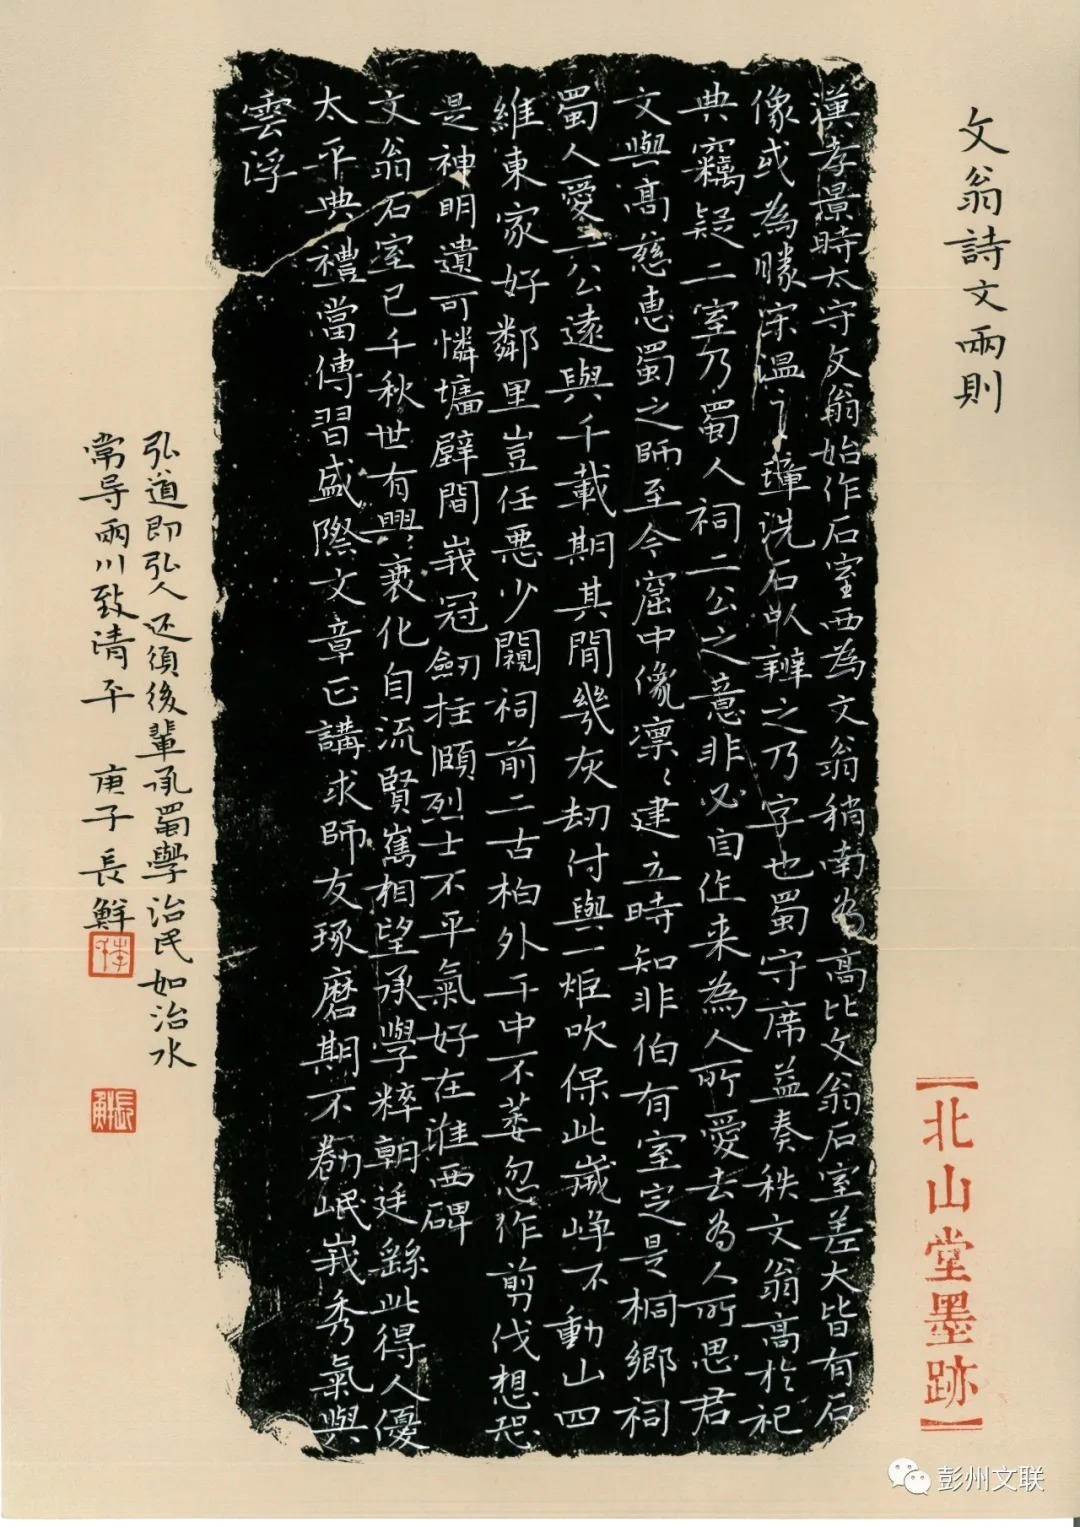 文翁詩文兩則
漢孝景時太守文翁始作石室西為文翁稍南為高比文翁石室差大皆有石
像或為勝宗温之璋洗石以辨之乃字也蜀守席益奏秩文翁高於祀
典竊疑二室乃蜀人祠二公之意非必自作来為人所愛去為人所思君
文與高慈惠蜀之師至今窟中像凛〻建立時知非伯有室定是桐鄉祠
蜀人愛二公遠與千載期其間幾灰劫付與一炬吹保此歲峥不動山四
維東家好鄰里豈任悪少闚祠前二古柏外干中不萎忽作剪伐想恐
是神明遺可憐墉壁間峩冠劒拄頤烈士不平氣好在淮西碑
文翁石室已千秋世有興衰化自流賢雋相望承學粹朝廷繇此得人優
太平典禮當傳習盛際文章正講求師友琢磨期不勸岷峩秀氣與
雲浮
弘道即弘人还須後輩承蜀學治民如治水
常导兩川致清平 庚子長鮮
北山堂墨跡
彭州文联